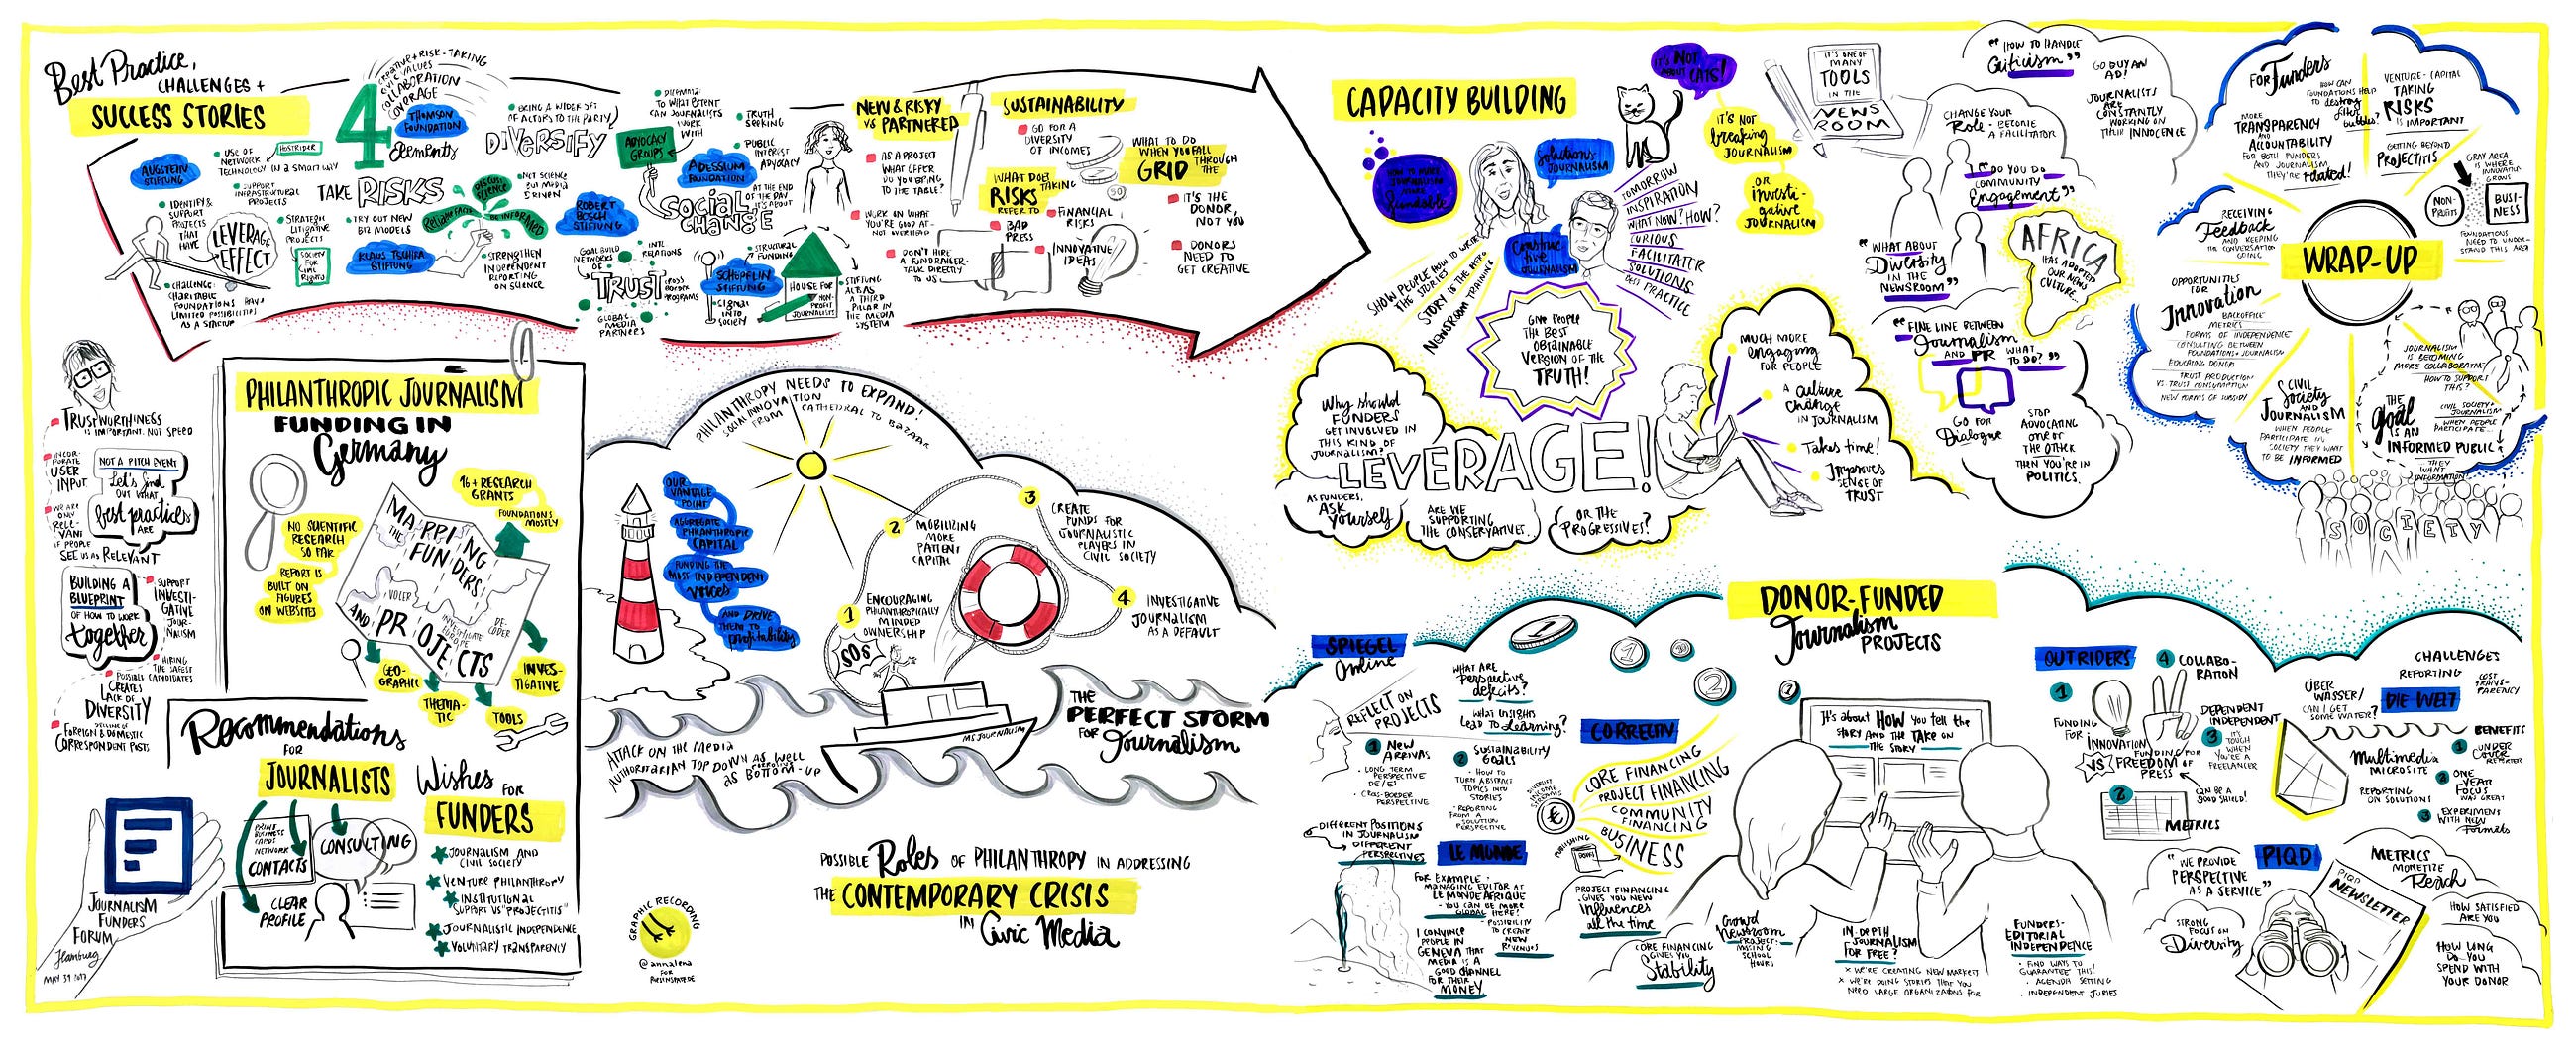 Best Practice,
CHALLENGES +
SUCCESS STORIES
CREATIVE + RISK-TAKING
CIVIC VALUES
COLLABORATION
COVERAGE
4
Elements
THOMSON
FOUNDATION
AUGSTEIN
STIFTUNG
USE OF
NETWORK
TECHNOLOGY IN A SMART WAY
HOSTWRITER
SUPPORT
INFRASTRUCTURAL
PROJECTS
IDENTIFY &
SUPPORT
PROJECTS
THAT
HAVE
LEVERAGE
EFFECT
STRATEGIC
LITIGATIVE
PROJECTS
SOCIETY
FOR
CIVIL
RIGHTS
CHALLENGE:
CHARITABLE
FOUNDATIONS HAVE
LIMITED POSSIBILITIES
AS A STARTUP
TAKE RISKS
TRY OUT NEW
BIZ MODELS
KLAUS TSCHIRA
STIFTUNG
DISCUSS
SCIENCE
RELIABLE FACTS
BE INFORMED
NOT SCIENCE
BUT MEDIA
DRIVEN
STRENGTHEN
INDEPENDENT
REPORTING
ON SCIENCE
BRING A WIDER SET
OF ACTORS TO THE PARTY
DIVERSIFY
ROBERT
BOSCH
STIFTUNG
GOAL: BUILD
NETWORKS
OF
TRUST
INTL
RELATIONS
CROSS
BORDER
PROGRAMS
GLOBAL
MEDIA
PARTNERS
DILEMMA:
TO WHAT EXTENT
CAN JOURNALISTS
WORK
WITH
ADVOCACY
GROUPS
TRUTH
SEEKING
PUBLIC
INTEREST
ADVOCACY
ADESSIUM
FOUNDATION
AT THE END
OF THE DAY
IT'S ABOUT
SOCIAL
CHANGE
STRUCTURAL
FUNDING
SCHÖPFLIN
STIFTUNG
SIGNAL
INTO
SOCIETY
HOUSE FOR
NON-
PROFIT
JOURNALISTS
STIFTUNG
ALS
A THIRD
PILLAR IN
THE MEDIA
SYSTEM
NEW & RISKY
VS PARTNERED
AS A PROJECT
WHAT OFFER
DO YOU BRING
TO THE TABLE?
WORK ON WHAT
YOU'RE GOOD AT -
NOT OVERHEAD
DON'T HIRE
A FUNDRAISER -
TALK DIRECTLY
TO US
SUSTAINABILITY
GO FOR A
DIVERSITY
OF INCOMES
WHAT DOES
RISKS TAKING
REFER TO
BAD
PRESS
FINANCIAL
RISKS
INNOVATIVE
IDEAS
50
WHAT TO DO
WHEN YOU FALL
THROUGH
THE
GRID
IT'S THE
DONOR,
NOT YOU
DONORS
NEED TO
GET CREATIVE
TRUSTWORTHINESS
IS IMPORTANT, NOT SPEED
INCOR-
PORATE
USER
INPUT
WE ARE
ONLY
RELE-
VANT
IF PEOPLE
SEE US AS RELEVANT
NOT A PITCH EVENT
Let's find
OUT WHAT
best practices
ARE
BUILDING A
BLUEPRINT
OF HOW TO WORK
together
SUPPORT
INVESTI-
GATIVE
JOUR-
NALISM
HIRING
THE SAFEST
POSSIBLE CANDIDATES
CREATES
LACK OF
DIVERSITY
FOREIGN & DOMESTIC
CORRESPONDENT POSTS
JOURNALISM
FUNDERS
FORUM
Hamburg
MAY 31 2017
PHILANTHROPIC JOURNALISM
FUNDING IN
Germany
NO SCIENTIFIC
RESEARCH
SO FAR
REPORT IS
BUILT ON
FIGURES
ON WEBSITES
16+ RESEARCH
GRANTS
FOUNDATIONS
MOSTLY
MAPPING
THE FUNDERS
AND PROJECTS
VOCER
INVESTIGATE
EUROPE
DE-
CODER
GEO-
GRAPHIC
THEMA-
TIC
TOOLS
INVES-
TIGATIVE
Recommendations
FOR
JOURNALISTS
PRINT
BUSINESS
CARDS
NETWORK
CONTACTS
CONSULTING
CLEAR
PROFILE
Wishes FOR
FUNDERS
JOURNALISM AND
CIVIL SOCIETY
VENTURE PHILANTHROPY
INSTITUTIONAL
SUPPORT VS "PROJECTITIS"
JOURNALISTIC INDEPENDENCE
VOLUNTARY TRANSPARENCY
PHILANTHROPY NEEDS TO EXPAND!
SOCIAL INNOVATION
FROM CATHEDRAL TO BAZAAR
OUR
VANTAGE
POINT
AGGREGATE
PHILANTHROPIC
CAPITAL
FUNDING THE
MOST INDEPENDENT
VOICES
AND DRIVE
THEM TO
profitability
1 ENCOURAGING
PHILANTHROPICALLY
MINDED
OWNERSHIP
2 MOBILIZING
MORE
PATIENT
CAPITAL
3 CREATE
FUNDS FOR
JOURNALISTIC
PLAYERS IN
CIVIL SOCIETY
4 INVESTIGATIVE
JOURNALISM
AS A DEFAULT
SOS
MS JOURNALISM
THE
PERFECT STORM
FOR Journalism
ATTACK ON THE MEDIA
AUTHORITARIAN TOP DOWN AS WELL
AS CORROSIVE BOTTOM-UP
POSSIBLE Roles OF PHILANTHROPY IN ADDRESSING
THE CONTEMPORARY CRISIS
IN Civic Media
GRAPHIC RECORDING
@annalena
FOR
CAPACITY BUILDING
HOW TO MAKE
JOURNALISM
MORE
fundable
IT'S NOT
ABOUT CATS!
IT'S NOT
breaking
JOURNALISM
OR
investi-
gative
JOURNALISM
Solutions
JOURNALISM
Construc-
tive
JOURNALISM
SHOW PEOPLE HOW TO WRITE
THE STORIES
STORY IS THE HERO
NEWSROOM TRAINING
TOMORROW
INSPIRATION
WHAT NOW? HOW?
CURIOUS
FACILITATOR
SOLUTIONS
BEST PRACTICE
GIVE PEOPLE
THE BEST
OBTAINABLE
VERSION OF THE
TRUTH!
Why should
FUNDERS
GET INVOLVED IN
THIS KIND OF
JOURNALISM?
LEVERAGE!
AS FUNDERS,
ASK
yourself
ARE WE
SUPPORTING
THE CONSERVATIVES...
OR THE
PROGRESSIVES?
MUCH MORE
engaging
FOR PEOPLE
A Culture
Change
IN JOURNALISM
Takes time!
Improves
SENSE OF
TRUST
IT'S ONE OF
MANY
TOOLS
IN THE
NEWS
ROOM
"HOW TO HANDLE
Criticism"
GO BUY AN
AD!
JOURNALISTS
ARE
CONSTANTLY
WORKING ON
THEIR INNOCENCE
CHANGE YOUR
Role - BECOME
A FACILITATOR
"DO YOU DO
COMMUNITY
Engagement"
"WHAT ABOUT
Diversity
IN THE
NEWSROOM"
AFRICA
HAS ADOPTED
OUR NEWS
CULTURE...
"FINE LINE BETWEEN
Journalism
AND PR WHAT
TO DO?"
GO FOR
Dialogue
STOP
ADVOCATING
ONE OR
THE OTHER
THEN YOU'RE IN
POLITICS.
WRAP-UP
FOR Funders
MORE
TRANSPARENCY
AND
ACCOUNTABILITY
FOR BOTH FUNDERS
AND JOURNALISM
THEY'RE related!
HOW CAN
FOUNDATIONS HELP
TO destroy
filter
bubbles?
VENTURE-CAPITAL
TAKING
RISKS
IS IMPORTANT
GETTING BEYOND
PROJECTITIS
GRAY AREA
IS WHERE
INNOVATION
GROWS
NON-
PROFITS
BUSI-
NESS
FOUNDATIONS
NEED TO UNDER-
STAND THIS AREA
RECEIVING
Feedback
AND KEEPING
THE CONVERSATION
GOING
OPPORTUNITIES
FOR
Innovation
BACKOFFICE
METRICS
FORMS OF INDEPENDENCE
CONSULTING BETWEEN
FOUNDATIONS + JOURNALISM
EDUCATING DONORS
TRUST PRODUCTION
VS. TRUST CONSUMPTION
NEW FORMS OF SUBSIDY
CIVIL
Society
AND
JOURNALISM
WHEN PEOPLE
PARTICIPATE IN
SOCIETY THEY WANT
TO BE INFORMED
JOURNALISM
IS BECOMING
MORE COLLABORATIVE
HOW TO SUPPORT
THIS?
THE
goal
IS AN
INFORMED PUBLIC
CIVIL SOCIETY &
JOURNALISM
WHEN PEOPLE
PARTICIPATE...
THEY
WANT
INFORMATION
SOCIETY
DONOR-FUNDED
Journalism
PROJECTS
SPIEGEL
Online
REFLECT ON
PROJECTS
WHAT ARE
Perspective
deficits?
What insights
LEAD TO Learning?
1 NEW
ARRIVALS
LONG TERM
PERSPECTIVE
DE/EU
CROSS-BORDER
PERSPECTIVE
2 SUSTAINABILITY
GOALS
HOW TO
TURN ABSTRACT
TOPICS INTO
STORIES
REPORTING
FROM A
SOLUTION
PERSPECTIVE
DIFFERENT POSITIONS
IN JOURNALISM
DIFFERENT
PERSPECTIVES
LE MONDE
FOR EXAMPLE:
MANAGING EDITOR AT
LE MONDE AFRIQUE
YOU CAN BE MORE
GLOBAL HERE!
POSSIBILITY
TO CREATE
NEW
REVENUES
I CONVINCE
PEOPLE IN
GENEVA THAT
MEDIA IS A
GOOD CHANNEL
FOR THEIR
MONEY
CORRECTIV
DIVERSIFY
INCOME
STREAMS
€
CORE FINANCING
PROJECT FINANCING
COMMUNITY
FINANCING
BUSINESS
PUBLISHING
BOOKS
PROJECT FINANCING
GIVES YOU NEW
influences
all the time
CORE FINANCING
GIVES YOU
Stability
Crowd
Newsroom
PROJECT:
MISSING
SCHOOL
HOURS
It's about HOW you tell the
STORY AND THE TAKE ON
THE STORY
IN-DEPTH
JOURNALISM
FOR FREE?
x WE'RE CREATING NEW MARKET
x WE'RE DOING STORIES THAT YOU
NEED LARGE ORGANIZATIONS FOR
FUNDERS-
EDITORIAL
INDEPENDENCE
FIND WAYS TO
GUARANTEE THIS!
AGENDA SETTING
INDEPENDENT JURIES
OUTRIDERS
1
FUNDING
FOR
INNOVATION
VS FUNDING FOR
FREEDOM OF
PRESS
CAN BE A
GOOD SHIELD!
2
METRICS
4 COLLABO-
RATION
DEPENDENT
INDEPENDENT
3 IT'S
TOUGH
WHEN
YOU'RE A
FREELANCER
CHALLENGES
REPORTING
COST TRANS-
PARENCY
ÜBER
WASSER/
CAN I GET
SOME WATER?
DIE WELT
Multimedia
MICROSITE
REPORTING
ON SOLUTIONS
BENEFITS
1 UNDER
COVER
REPORTER
2 ONE
YEAR
FOCUS
WAS GREAT
3 EXPERIMENT
WITH NEW
Formats
PIQD
"WE PROVIDE
PERSPECTIVE
AS A SERVICE"
STRONG
FOCUS ON
Diversity
PIQD
NEWSLETTER
METRICS
MONETIZE
Reach
HOW SATISFIED
ARE YOU
HOW LONG
DO YOU
SPEND WITH
YOUR DONOR